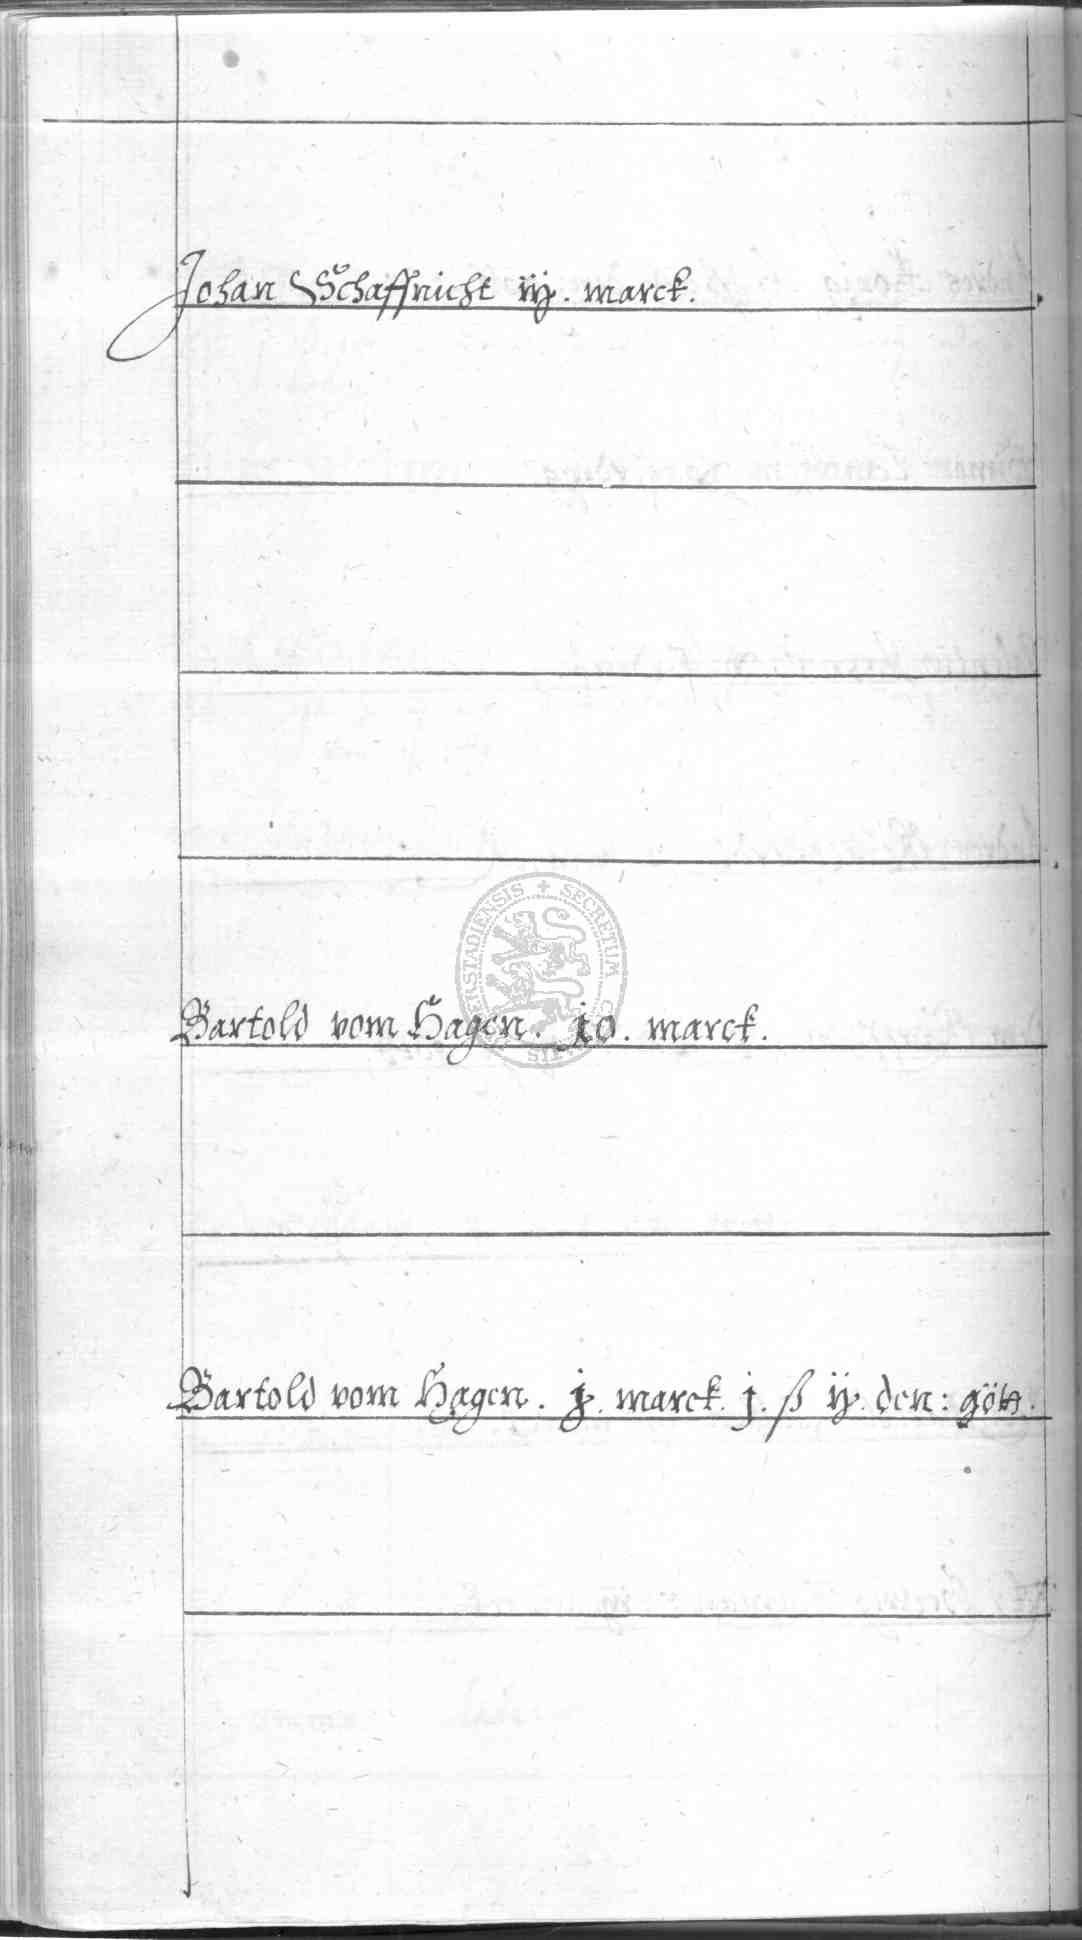 Johan Schaffnicht iij. marck.
ERSTADIENSIS + SECRETUM
Bartold vom Hagen. 10. marck.
Bartold vom Hagen. j. marck. j. ß ij. den: gött.